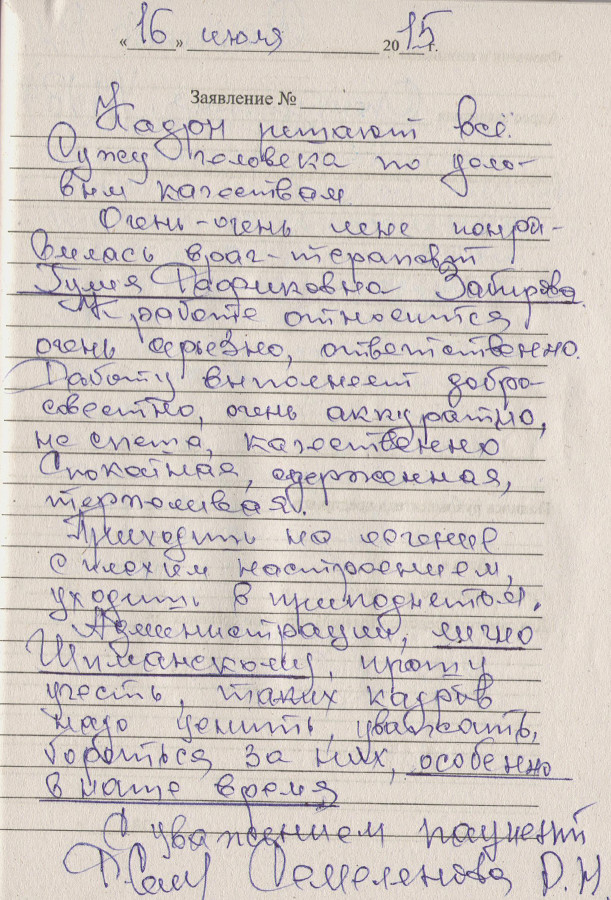 «16» июля 2015 г.
Заявление № ______
Кадры решают все.
Сужу человека по дело-
вым качествам.
Очень-очень мне понра-
вилась врач-терапевт
Гулия Рафиковна Забирова.
К работе относится
очень серьезно, ответственно.
Работу выполняет добро-
совестно, очень аккуратно,
не спеша, качественно
Спокойная, сдержанная,
терпеливая.
Приходить на лечение
с плохим настроением,
уходить в приподнятом.
Администрации, лично
Шиманскому, прошу
учесть, таких кадров
надо ценить, уважать,
бороться за них, особенно
в наше время
С уважением пациент